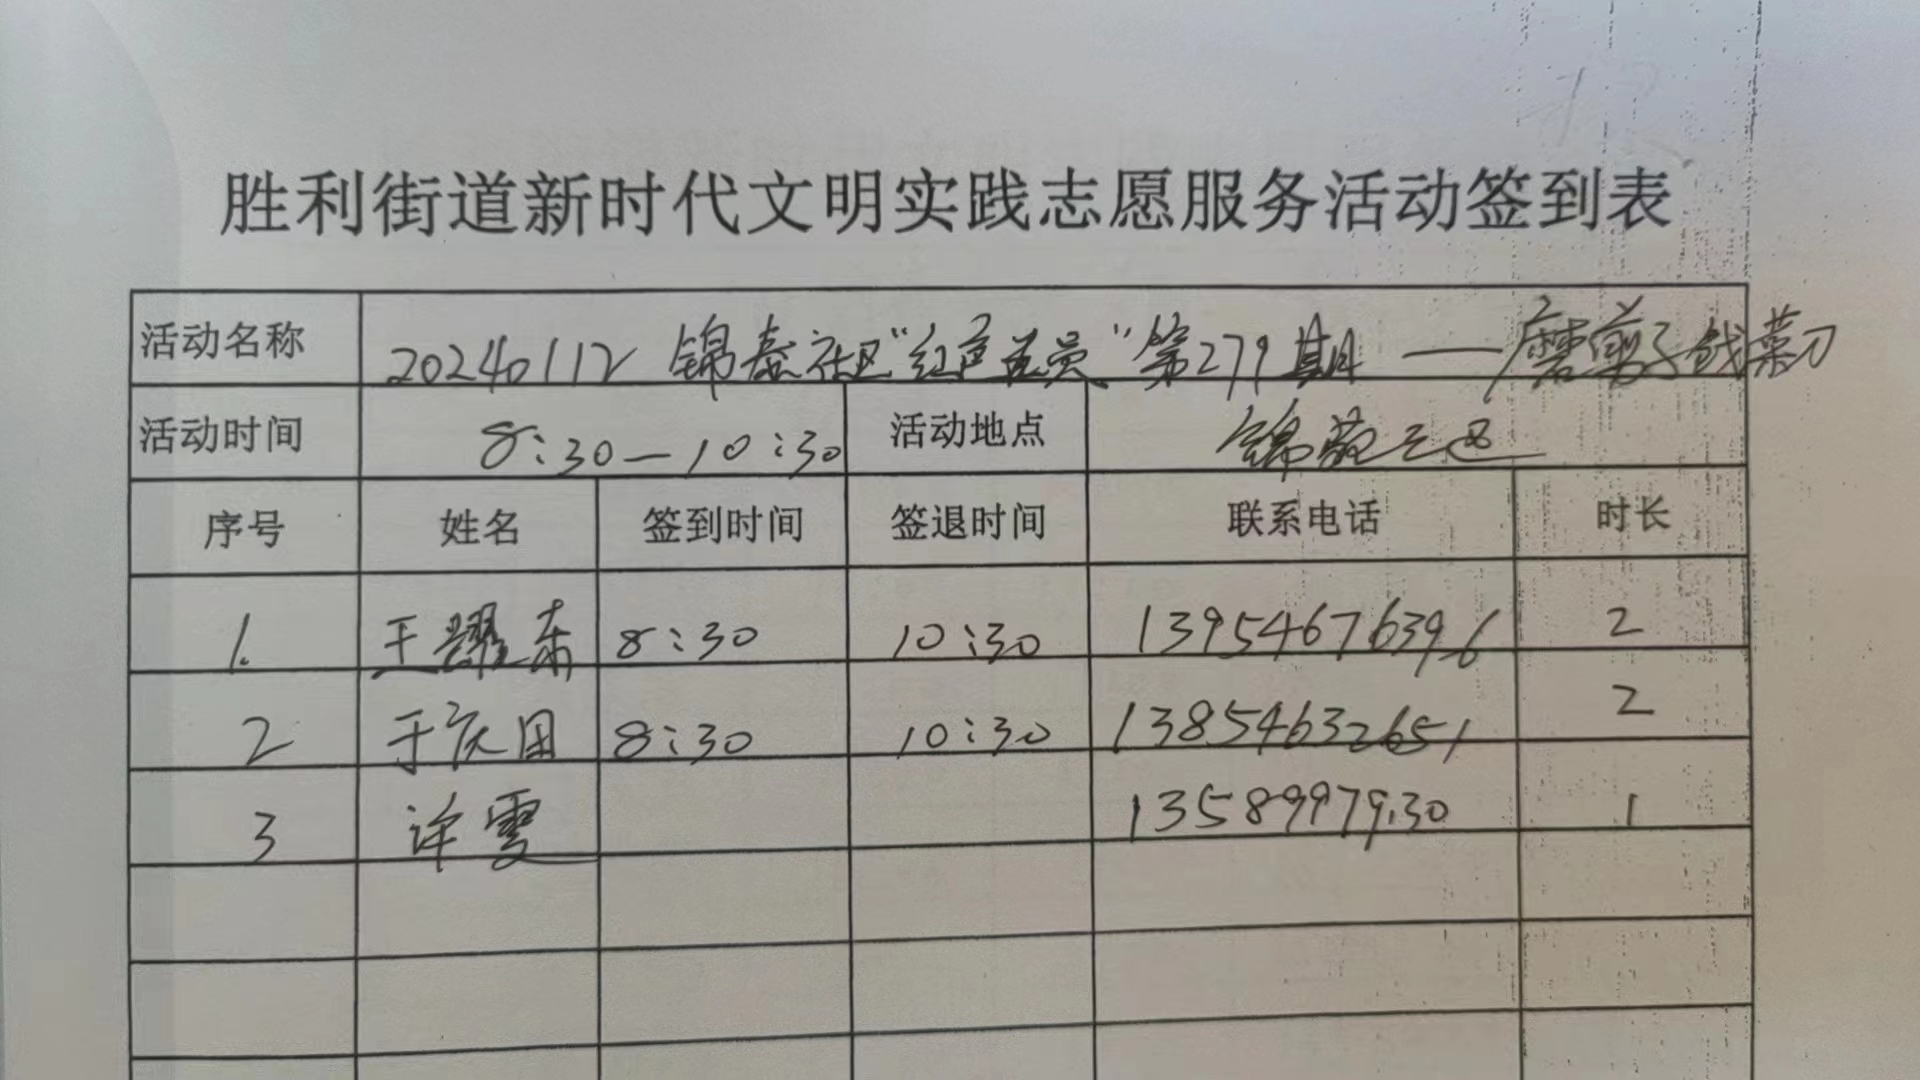 胜利街道新时代文明实践志愿服务活动签到表
活动名称 20240112 锦泰社区“红色党员”第279期——磨剪子戗菜刀
活动时间 8:30—10:30 活动地点 锦苑三区
序号 姓名 签到时间 签退时间 联系电话 时长
1. 王耀东 8:30 10:30 13954676396 2
2 于庆田 8:30 10:30 13854632651 2
3 许雯 13589979130 1